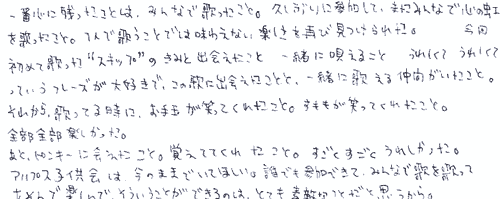 一番心に残ったことは、みんなで歌ったこと。久しぶりに参加して、またみんなで心の虹
を歌ったこと。1人で歌うことでは味わえない楽しさを再び見つけられた。 今回
初めて歌った"ステップ"のきみと出会えたこと 一緒に唄えること うれしくて うれしくて
っていうフレーズが大好きで、この歌に出会えたことと、一緒に歌える仲間がいたこと。
それから、歌ってる時に、お玉が笑ってくれたこと。すももが笑ってくれたこと。
全部全部楽しかった。
あと、ドンキーに会えたこと。覚えててくれたこと。すごくすごくうれしかった。
アルプス子供会は今のままでいてほしい。誰でも参加できて、みんなで歌を歌って
楽しんで、そういうことができるのは、とても素敵なことだと思うから。